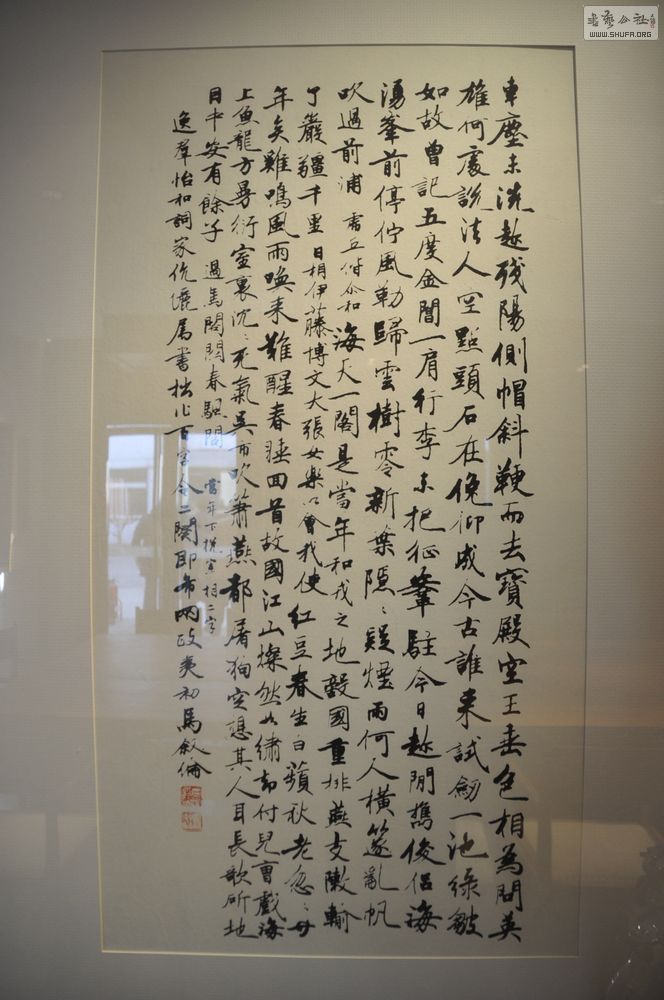 車塵未洗趁殘陽側帽斜鞭而去寶殿空王垂色相為問英
雄何處說法人空點頭石在俛仰成今古誰來試劒一池綠皺
如故曾記五度金閶一肩行李未把征鞍駐今日趁閒攜俊侶海
湧峯前停佇風勒歸雲樹零新葉隱〻疑煙雨何人橫篴亂帆
吹過前浦 海天一閣是當年和戎之地毅國重排燕支隊輸
了巖疆千里 日相伊藤博文大張女樂以會我使 紅豆春生白蘋秋老忽〻廿
年矣雞鳴風雨喚来難醒春睡回首故國江山燦然如繡都付兒曹戲海
上魚龍方曼衍室裏沈〻死氣吳市吹簫燕都屠狗空想其人耳長歌斫地
目中安有餘子 過馬關春颿閣 當年下 相二字
逸羣怡和詞家伉儷属書拙作百字令二闋即希兩政夷初馬叙倫
書藝公社
WWW.SHUFA.ORG